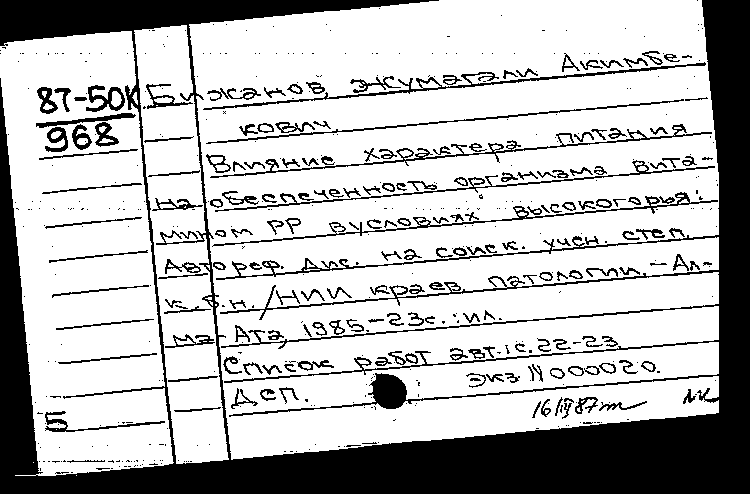 87-50К
968
Бижанов, Жумагали Акимбе-
кович.
Влияние характера питания
на обеспеченность организма вита-
мином РР в условиях высокогорья:
Автореф. дис. на соиск. учен. степ.
к.б.н. /НИИ краев. патологии.-Ал-
ма-Ата, 1985.-23с.:ил.
Список работ авт.: с.22-23.
ДСП. экз. N 000020.
5 16/III 87